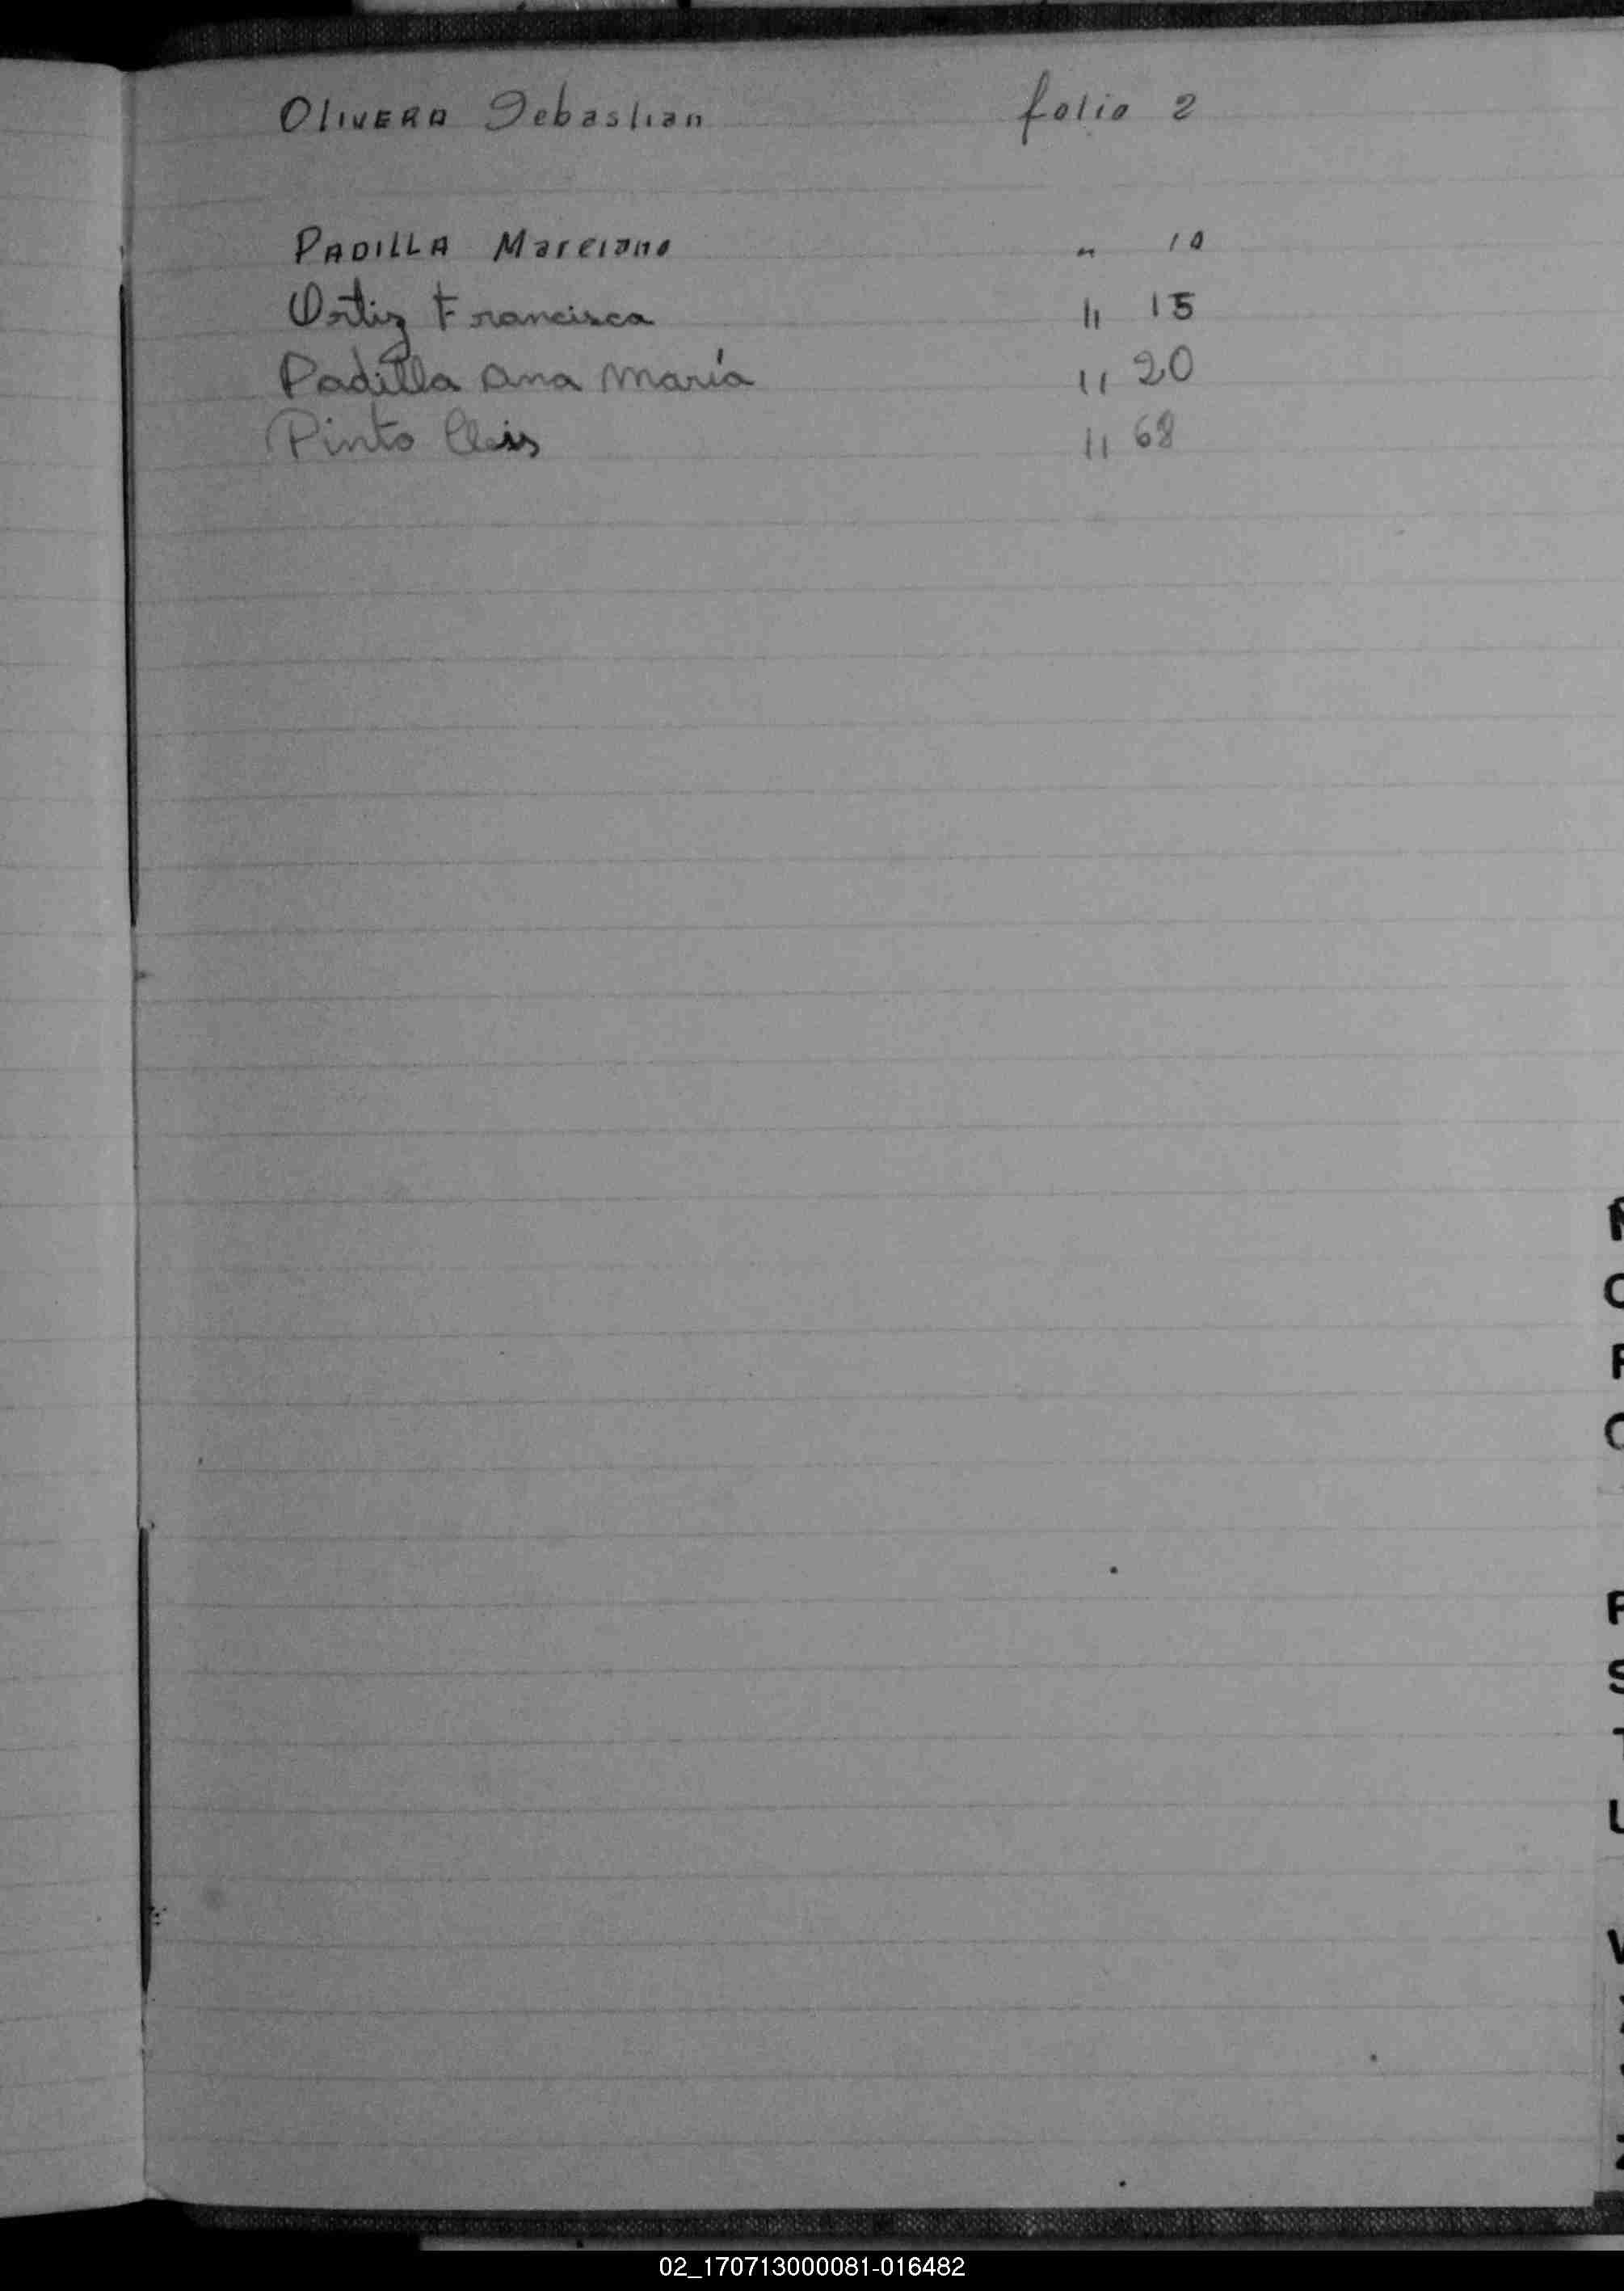 OLIVERA Sebastian folio 2
PADILLA Marciano " 10
Ortiz Francisca " 15
Padilla Ana María " 20
Pinto " 68
S
U
02_170713000081-016482